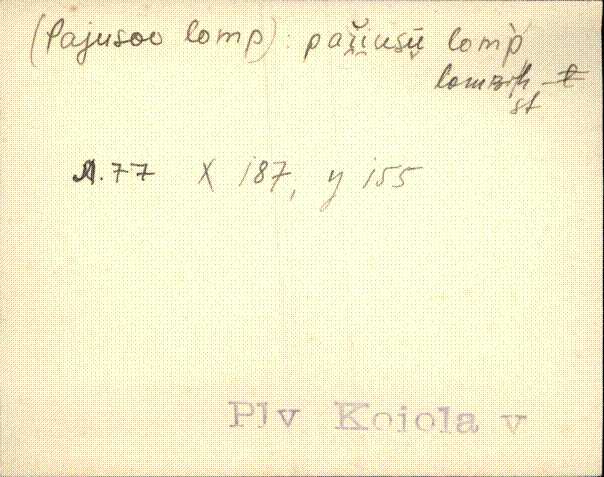 (Pajusoo lomp): pažiusū lomp̀
st
A.77 X 187, y 155
Plv Koiola v